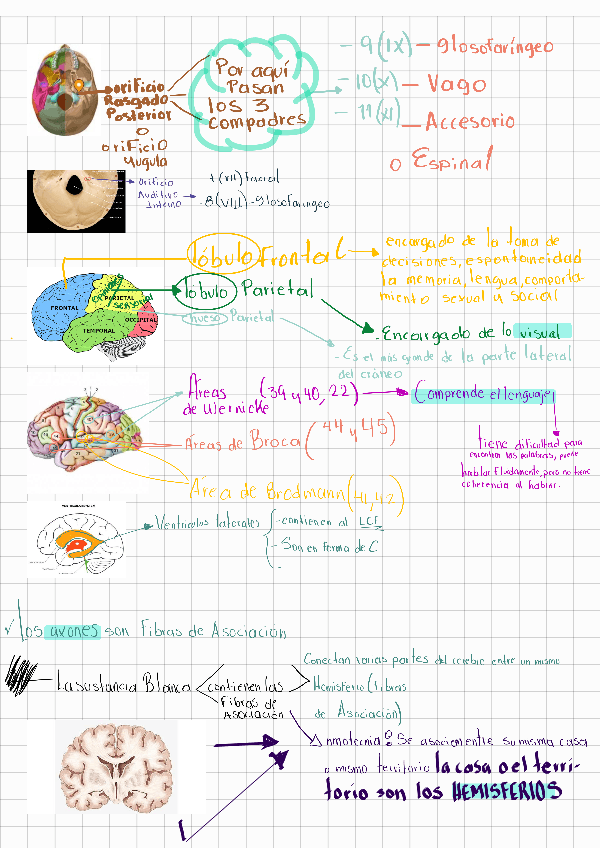 orificio
Rasgado
Posterior
o
orificio
Yugula
Por aquí
Pasan
los 3
compadres
- 9 (IX) - glosofaríngeo
- 10 (X) - Vago
- 11 (XI) - Accesorio
o Espinal
Orificio
Auditivo
Interno
7 (VII) Facial
8 (VIII) - glosofaringeo
lóbulo Frontal
encargado de la toma de
decisiones, espontaneidad
la memoria, lengua, comporta-
miento sexual y social
FRONTAL
PARIETAL
OCCIPITAL
TEMPORAL
sensorial
lóbulo Parietal
hueso Parietal
- Encargado de lo visual
- Es el más grande de la parte lateral
del cráneo
Áreas (39 y 40, 22)
de Wernicke
Comprende el lenguaje
Áreas de Broca (44 y 45)
tiene dificultad para
encontrar las palabras, puede
hablar fluidamente, pero no tiene
coherencia al hablar.
Área de Brodmann (41, 42)
Ventriculos laterales
- contienen al LCF
- Son en forma de C
✓ Los axones son Fibras de Asociación
La sustancia Blanca
contienen las
Fibras de
Asociación
Conectan varias partes del cerebro entre un mismo
Hemisferio (fibras
de Asociación)
Se asocien entre su misma casa
o mismo territorio la casa o el terri-
torio son los HEMISFERIOS